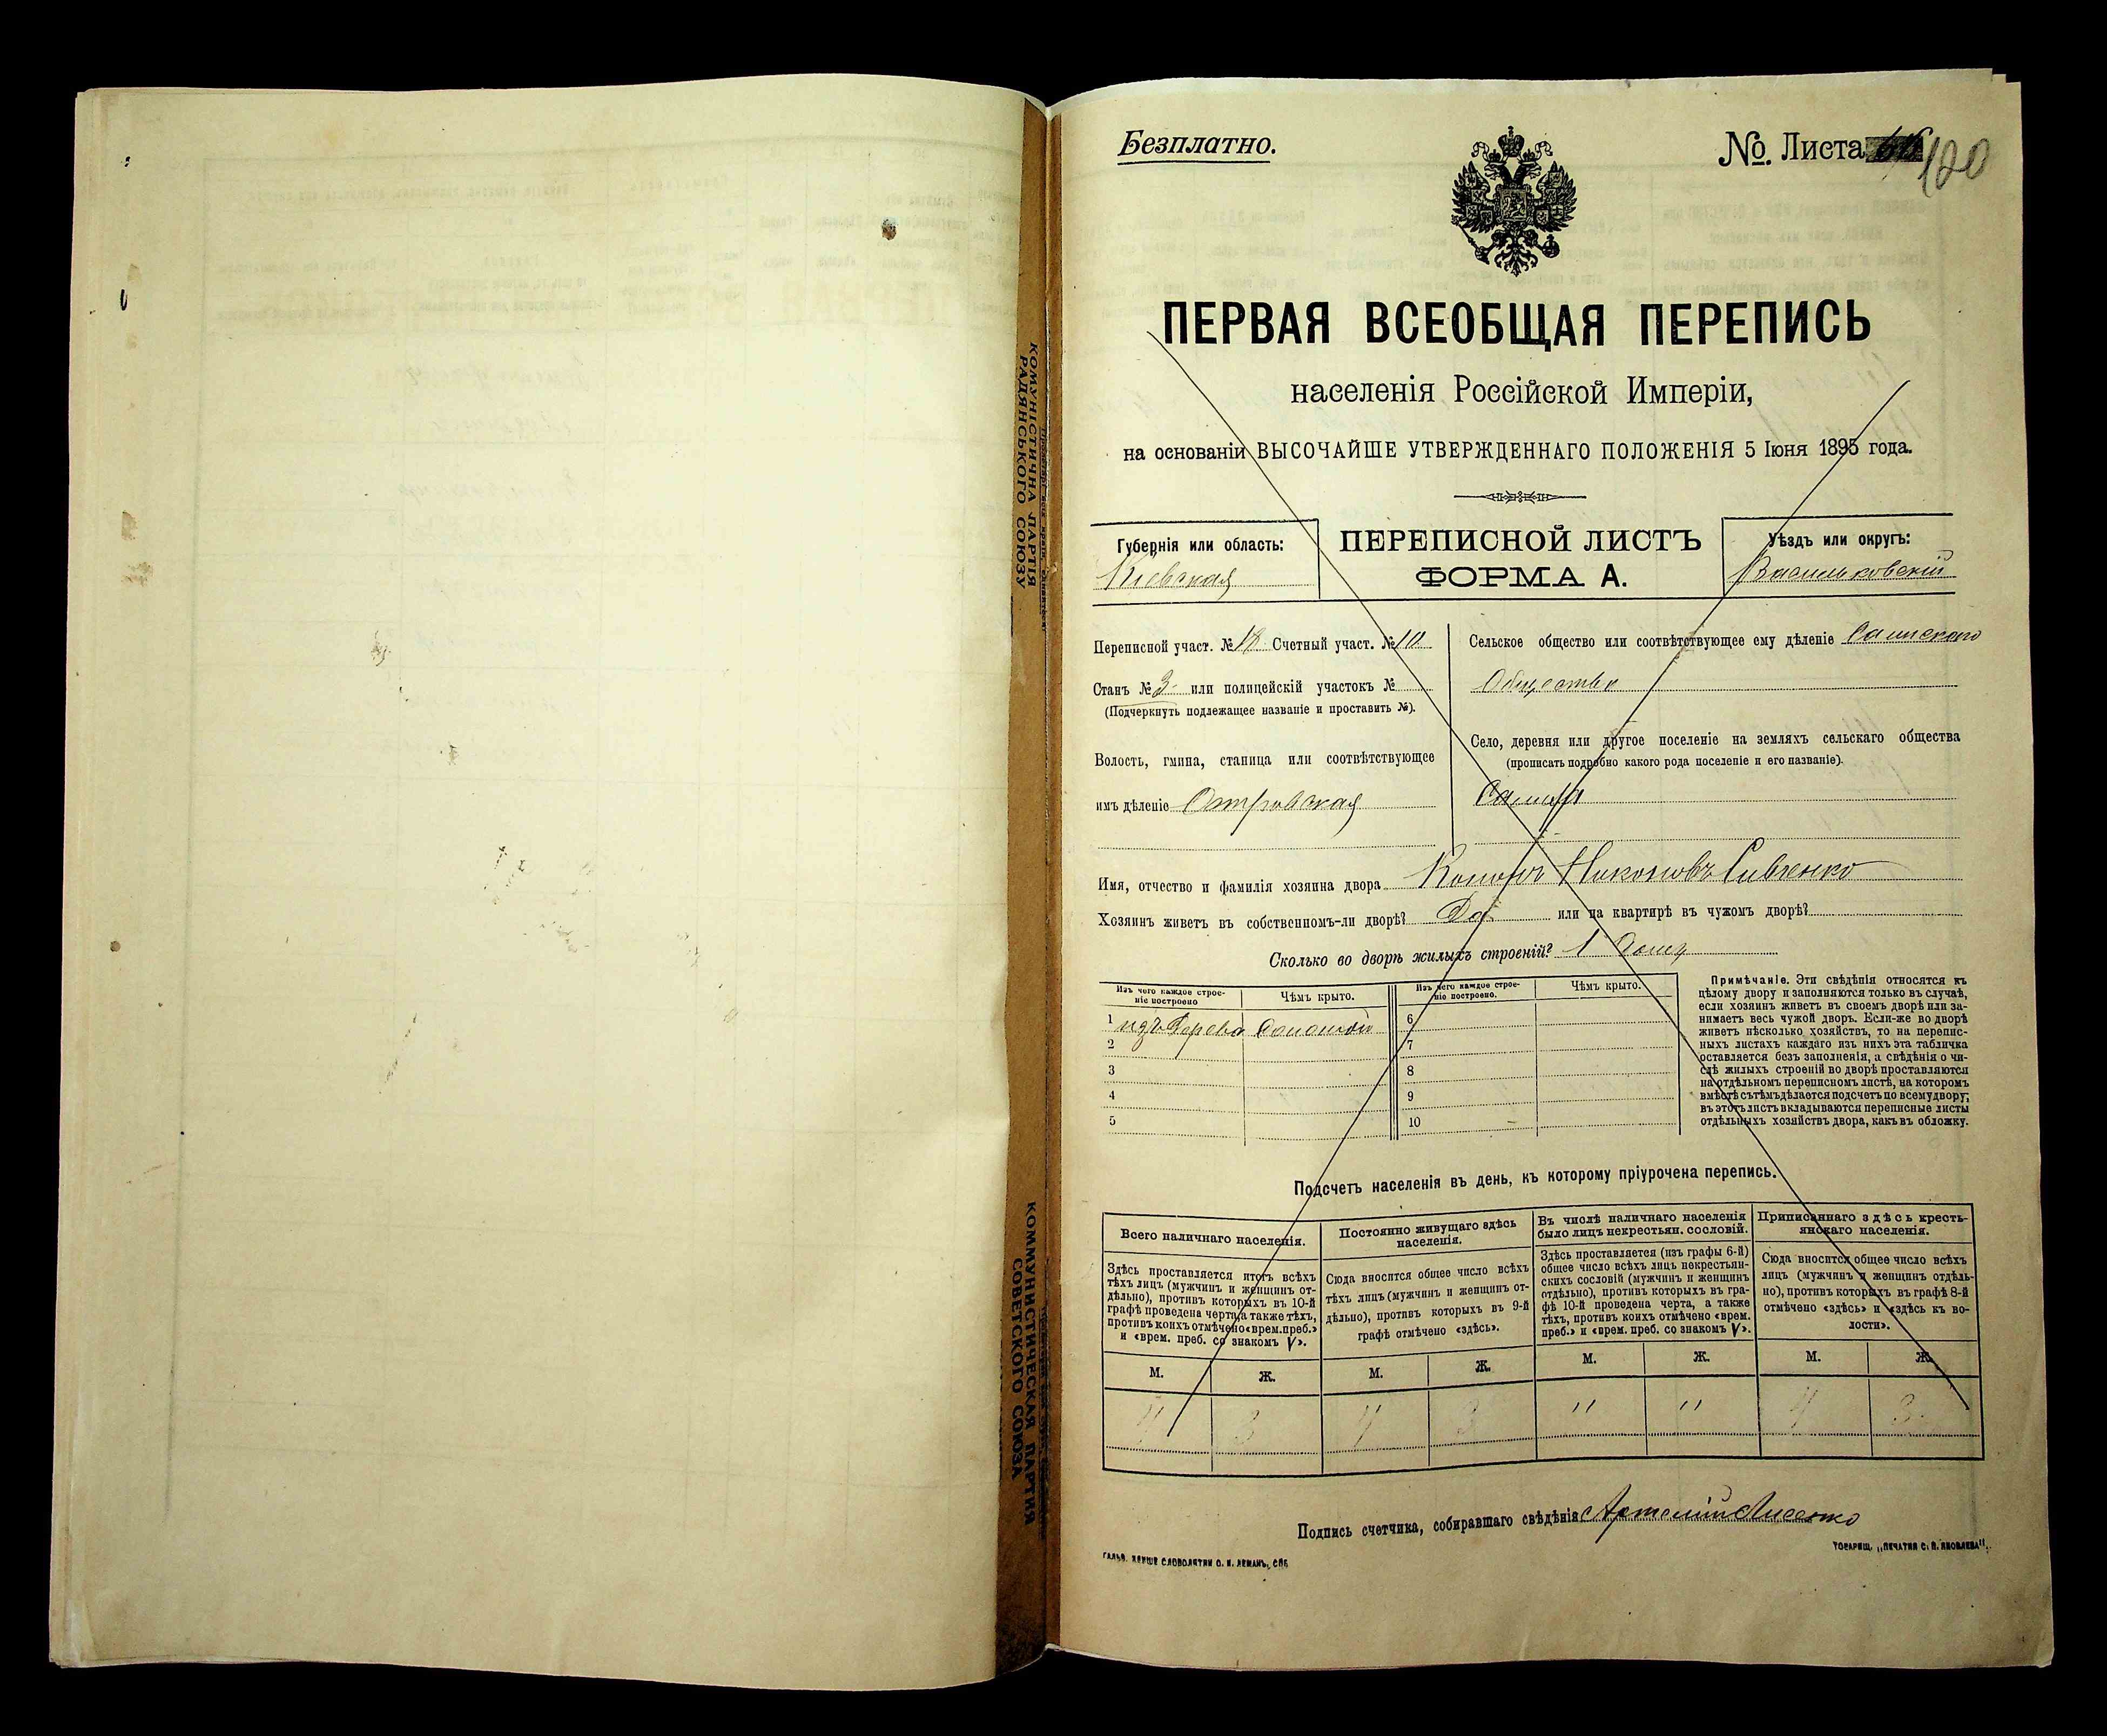 Безплатно.
No. Листа 120
ПЕРВАЯ ВСЕОБЩАЯ ПЕРЕПИСЬ
населенія Россійской Имперіи,
на основаніи ВЫСОЧАЙШЕ УТВЕРЖДЕННАГО ПОЛОЖЕНІЯ 5 Іюня 1895 года.
Губернія или область:
Кіевская
ПЕРЕПИСНОЙ ЛИСТЪ
ФОРМА А.
Уѣздъ или округъ:
Васильковскій
Переписной участ. № 18 Счетный участ. № 10
Станъ № 3 или полицейскій участокъ №
(Подчеркнуть подлежащее названіе и проставить №).
Волость, гмина, станица или соотвѣтствующее
имъ дѣленіе
Сельское общество или соотвѣтствующее ему дѣленіе
Общество
Село, деревня или другое поселеніе на земляхъ сельскаго общества
(прописать подробно какого рода поселеніе и его названіе).
Имя, отчество и фамилія хозяина двора
Хозяинъ живетъ въ собственномъ-ли дворѣ? Да или на квартирѣ въ чужомъ дворѣ?
Сколько во дворѣ жилыхъ строеній? 1
Изъ чего каждое строе-
ніе построено
Чѣмъ крыто.
Изъ чего каждое строе-
ніе построено.
Чѣмъ крыто.
1 изъ дерева соломой
2
3
4
5
6
7
8
9
10
Примѣчаніе. Эти свѣдѣнія относятся къ
цѣлому двору и заполняются только въ случаѣ,
если хозяинъ живетъ въ своемъ дворѣ или за-
нимаетъ весь чужой дворъ. Если-же во дворѣ
живетъ нѣсколько хозяйствъ, то на перепис-
ныхъ листахъ каждаго изъ нихъ эта табличка
оставляется безъ заполненія, а свѣдѣнія о чи-
слѣ жилыхъ строеній во дворѣ проставляются
на отдѣльномъ переписномъ листѣ, на которомъ
вмѣстѣ съ тѣмъ дѣлается подсчетъ по всему двору;
въ этотъ листъ вкладываются переписные листы
отдѣльныхъ хозяйствъ двора, какъ въ обложку.
Подсчетъ населенія въ день, къ которому пріурочена перепись.
Всего наличнаго населенія.
Здѣсь проставляется итогъ всѣхъ
тѣхъ лицъ (мужчинъ и женщинъ от-
дѣльно), противъ которыхъ въ 10-й
графѣ проведена черта, а также тѣхъ,
противъ коихъ отмѣчено «врем. преб.»
и «врем. преб. со знакомъ V».
Постоянно живущаго здѣсь
населенія.
Сюда вносится общее число всѣхъ
тѣхъ лицъ (мужчинъ и женщинъ от-
дѣльно), противъ которыхъ въ 9-й
графѣ отмѣчено «здѣсь».
Въ числѣ наличнаго населенія
было лицъ некрестьян. сословій.
Здѣсь проставляется (изъ графы 6-й)
общее число всѣхъ лицъ некрестьян-
скихъ сословій (мужчинъ и женщинъ
отдѣльно), противъ которыхъ въ гра-
фѣ 10-й проведена черта, а также
тѣхъ, противъ коихъ отмѣчено «врем.
преб.» и «врем. преб. со знакомъ V».
Приписаннаго здѣсь кресть-
янскаго населенія.
Сюда вносится общее число всѣхъ
лицъ (мужчинъ и женщинъ отдѣль-
но), противъ которыхъ въ графѣ 8-й
отмѣчено «здѣсь» и «здѣсь къ во-
лости».
М. Ж. М. Ж. М. Ж. М. Ж.
4 3 4 3 " " 4 3
Подпись счетчика, собиравшаго свѣдѣнія
ТОВАРИЩ. „ПЕЧАТНЯ С. П. ЯКОВЛЕВА".
КОМУНІСТИЧНА ПАРТІЯ
РАДЯНСЬКОГО СОЮЗУ
КОММУНИСТИЧЕСКАЯ ПАРТИЯ
СОВЕТСКОГО СОЮЗА